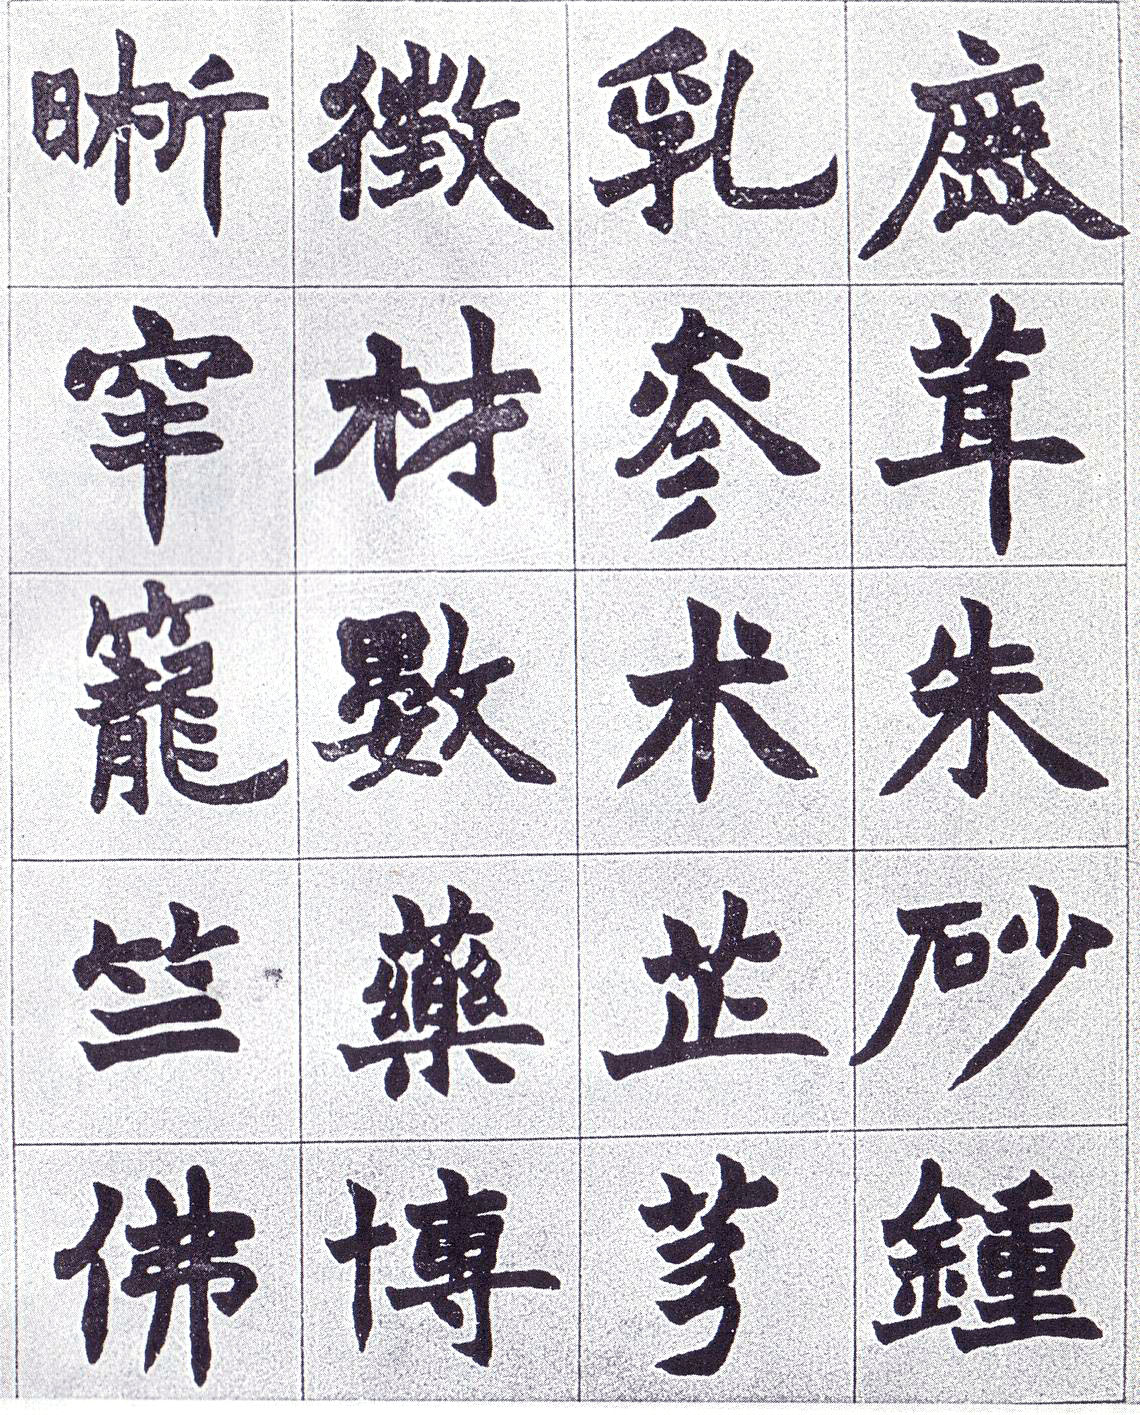 鹿茸朱砂鍾
乳参术芷芎
徵材數藥博
晰罕籠竺佛